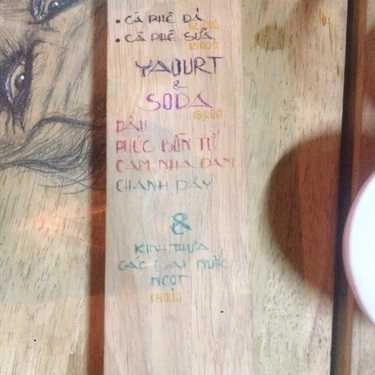 • CÀ PHÊ ĐÁ
• CÀ PHÊ SỮA
YAOURT
&
SODA
DÂU
PHÚC BỒN TỬ
CAM NHA ĐAM
CHANH DÂY
&
KINH THƯA
CÁC LOẠI NƯỚC
NGỌT